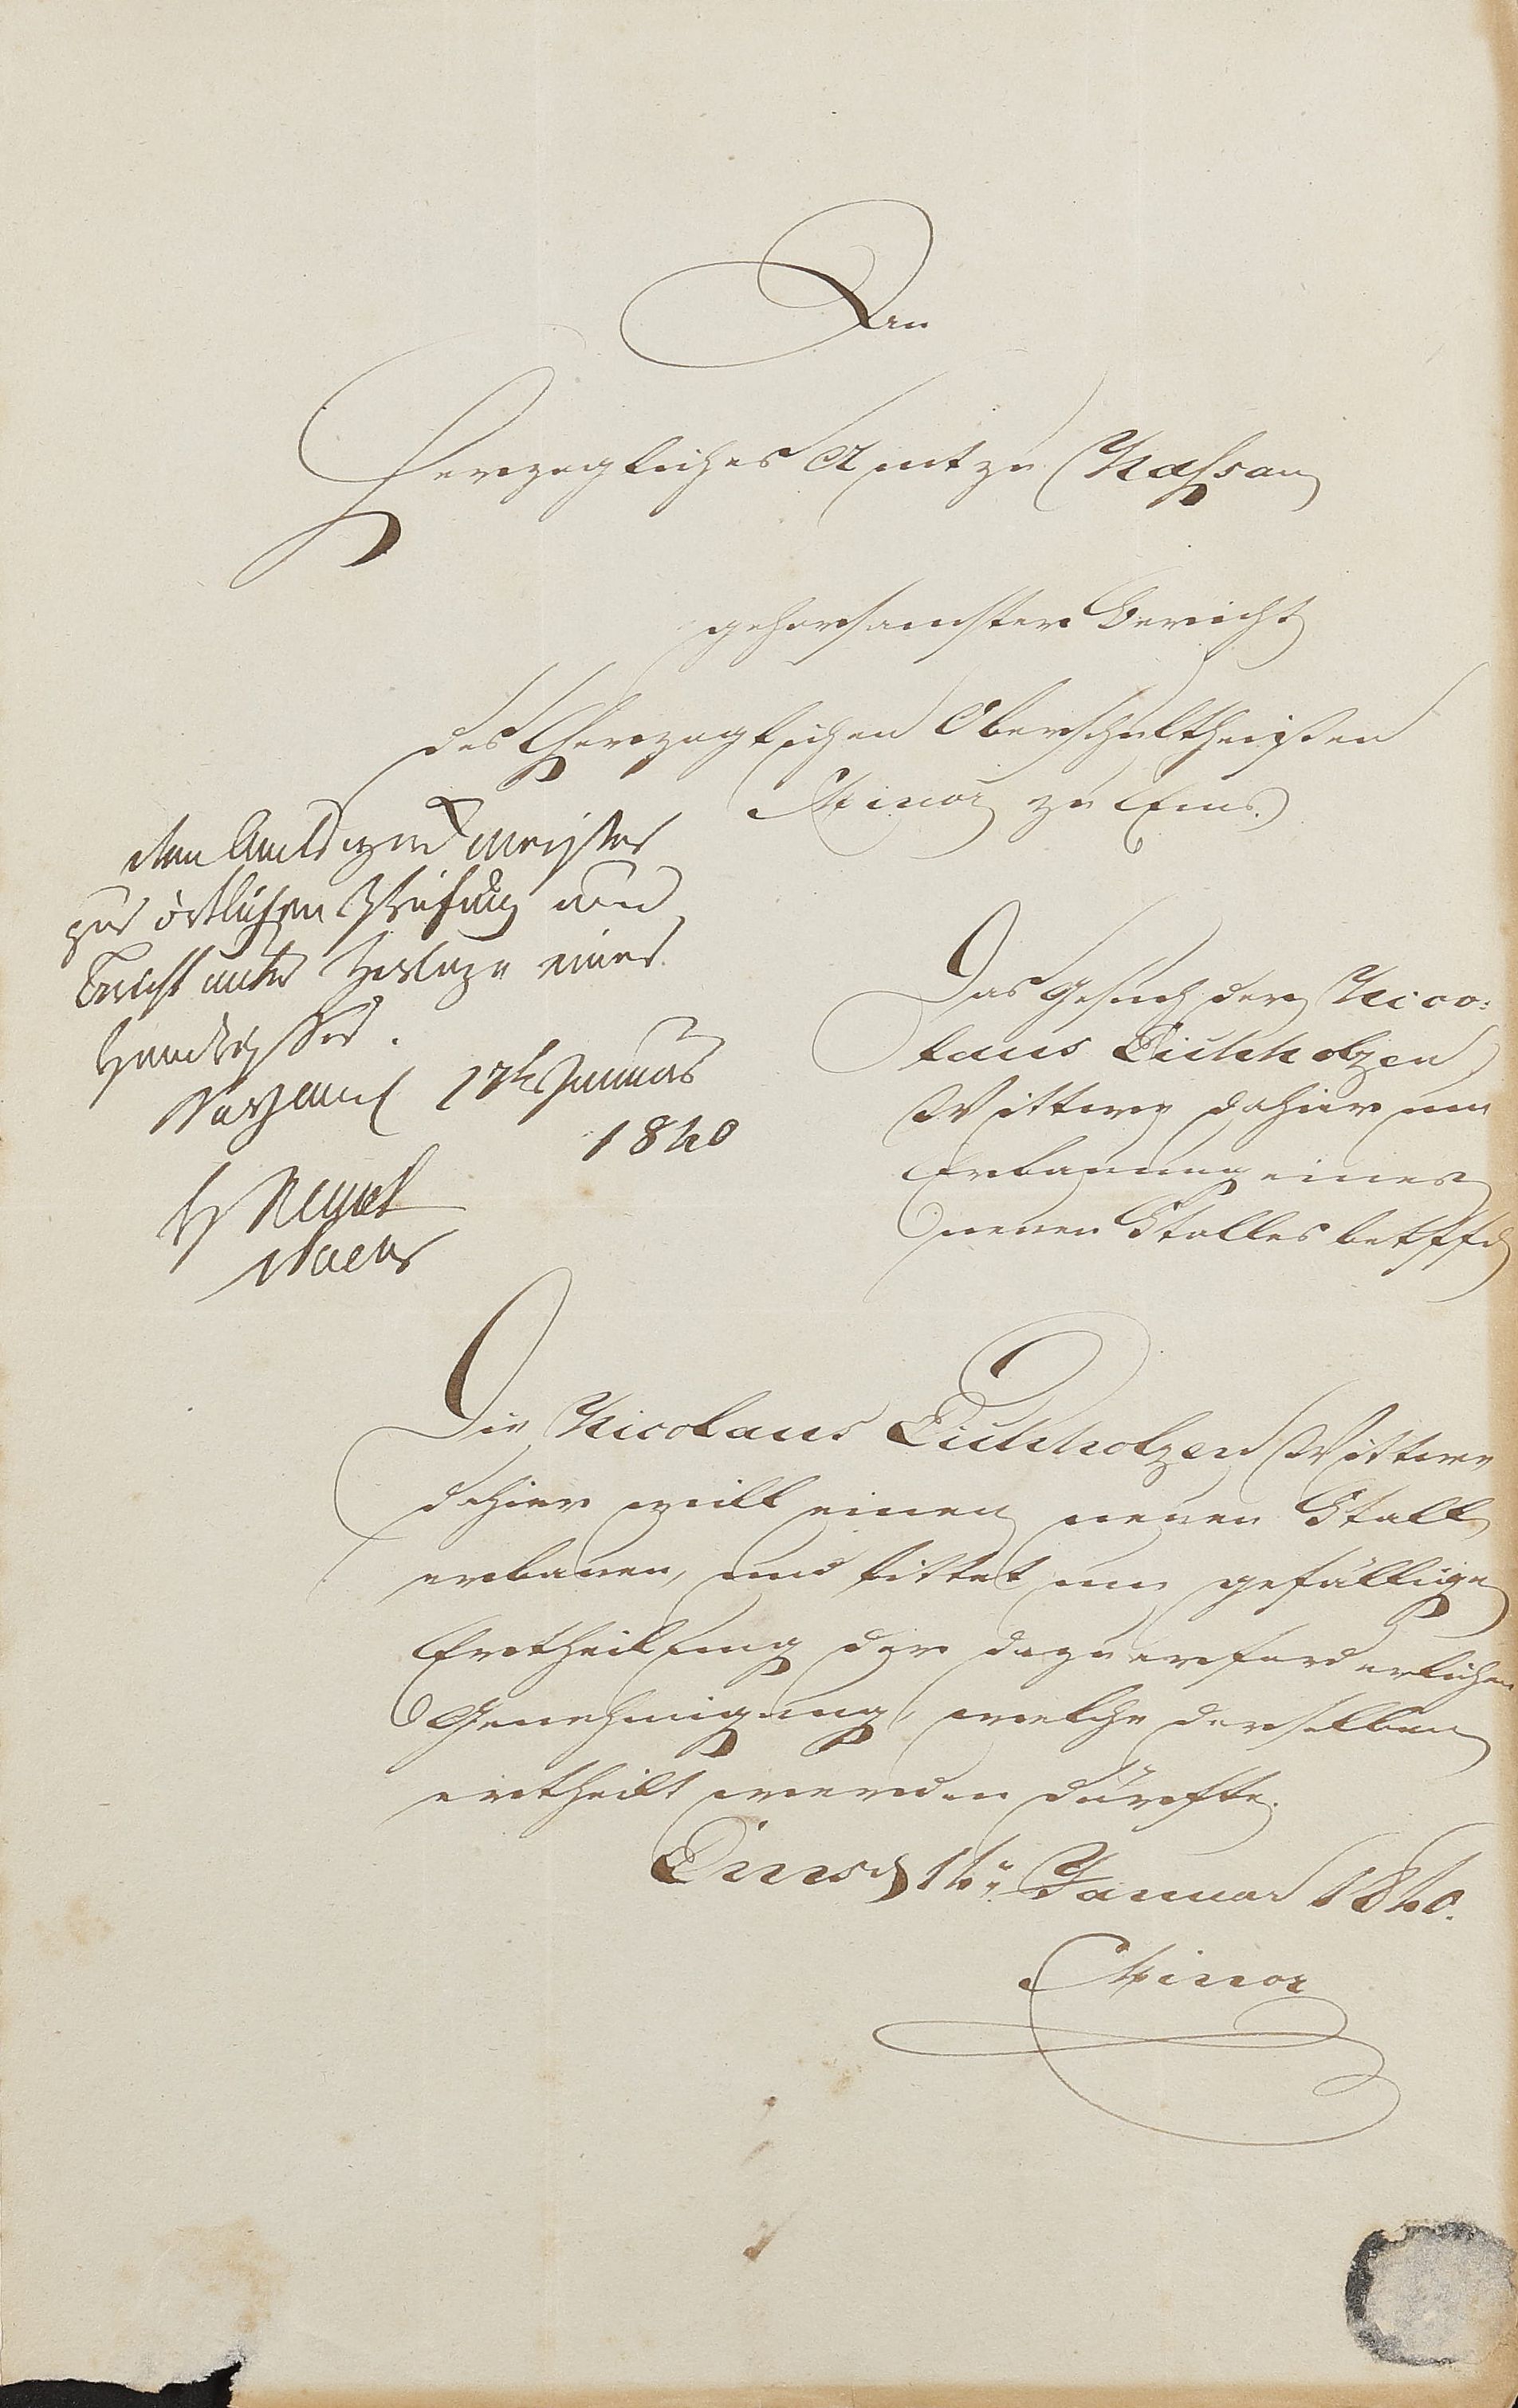 An
Herzogliches Amt zu Nassau
gehorsamster Bericht
des Herzoglichen Oberschultheißen
Minor zu Ems.
Dem Amtswerkmeister
zur örtlichen Prüfung und
Bericht unter Vorlage eines
Handrisses.
Nassau 17t Januar
1840
Das Gesuch der Nico:
laus Eichholzen
Wittwe dahier um
Erbauung eines
neuen Stalles betffd
Die Nicolaus Eichholzen Wittwe
dahier will einen neuen Stall
erbauen, und bittet um gefällige
Ertheilung der dazu erforderlichen
Genehmigung, welche derselben
ertheilt werden dürfte.
Ems d 16n Januar 1840.
Minor